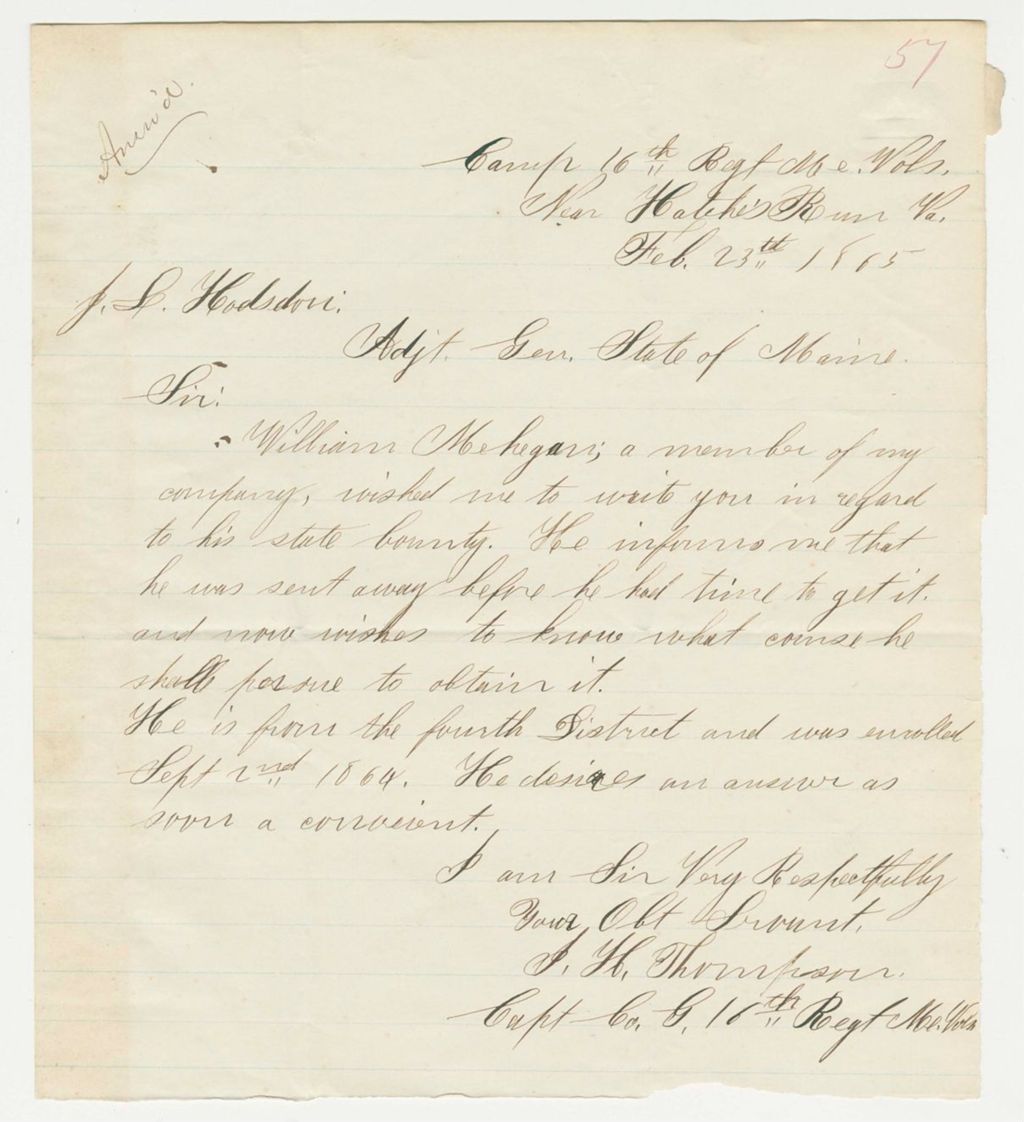 57
Answ'd.
Camp 16th Regt Me. Vols.
Near Hatche's Run Va.
Feb. 23th 1865
J. L. Hodsdon.
Adjt. Gen. State of Maine.
Sir:
William Mehegan; a member of my
company, wished me to write you in regard
to his state bounty. He informs me that
he was sent away before he had time to get it.
and now wishes to know what course he
shall persue to obtain it.
He is from the fourth District and was enrolled
Sept 2nd 1864. He desires an answer as
soon a conveient.
I am Sir Very Respectfully
Your Obt Srvant.
J. H. Thompson.
Capt Co. G. 16th Regt Me. Vols